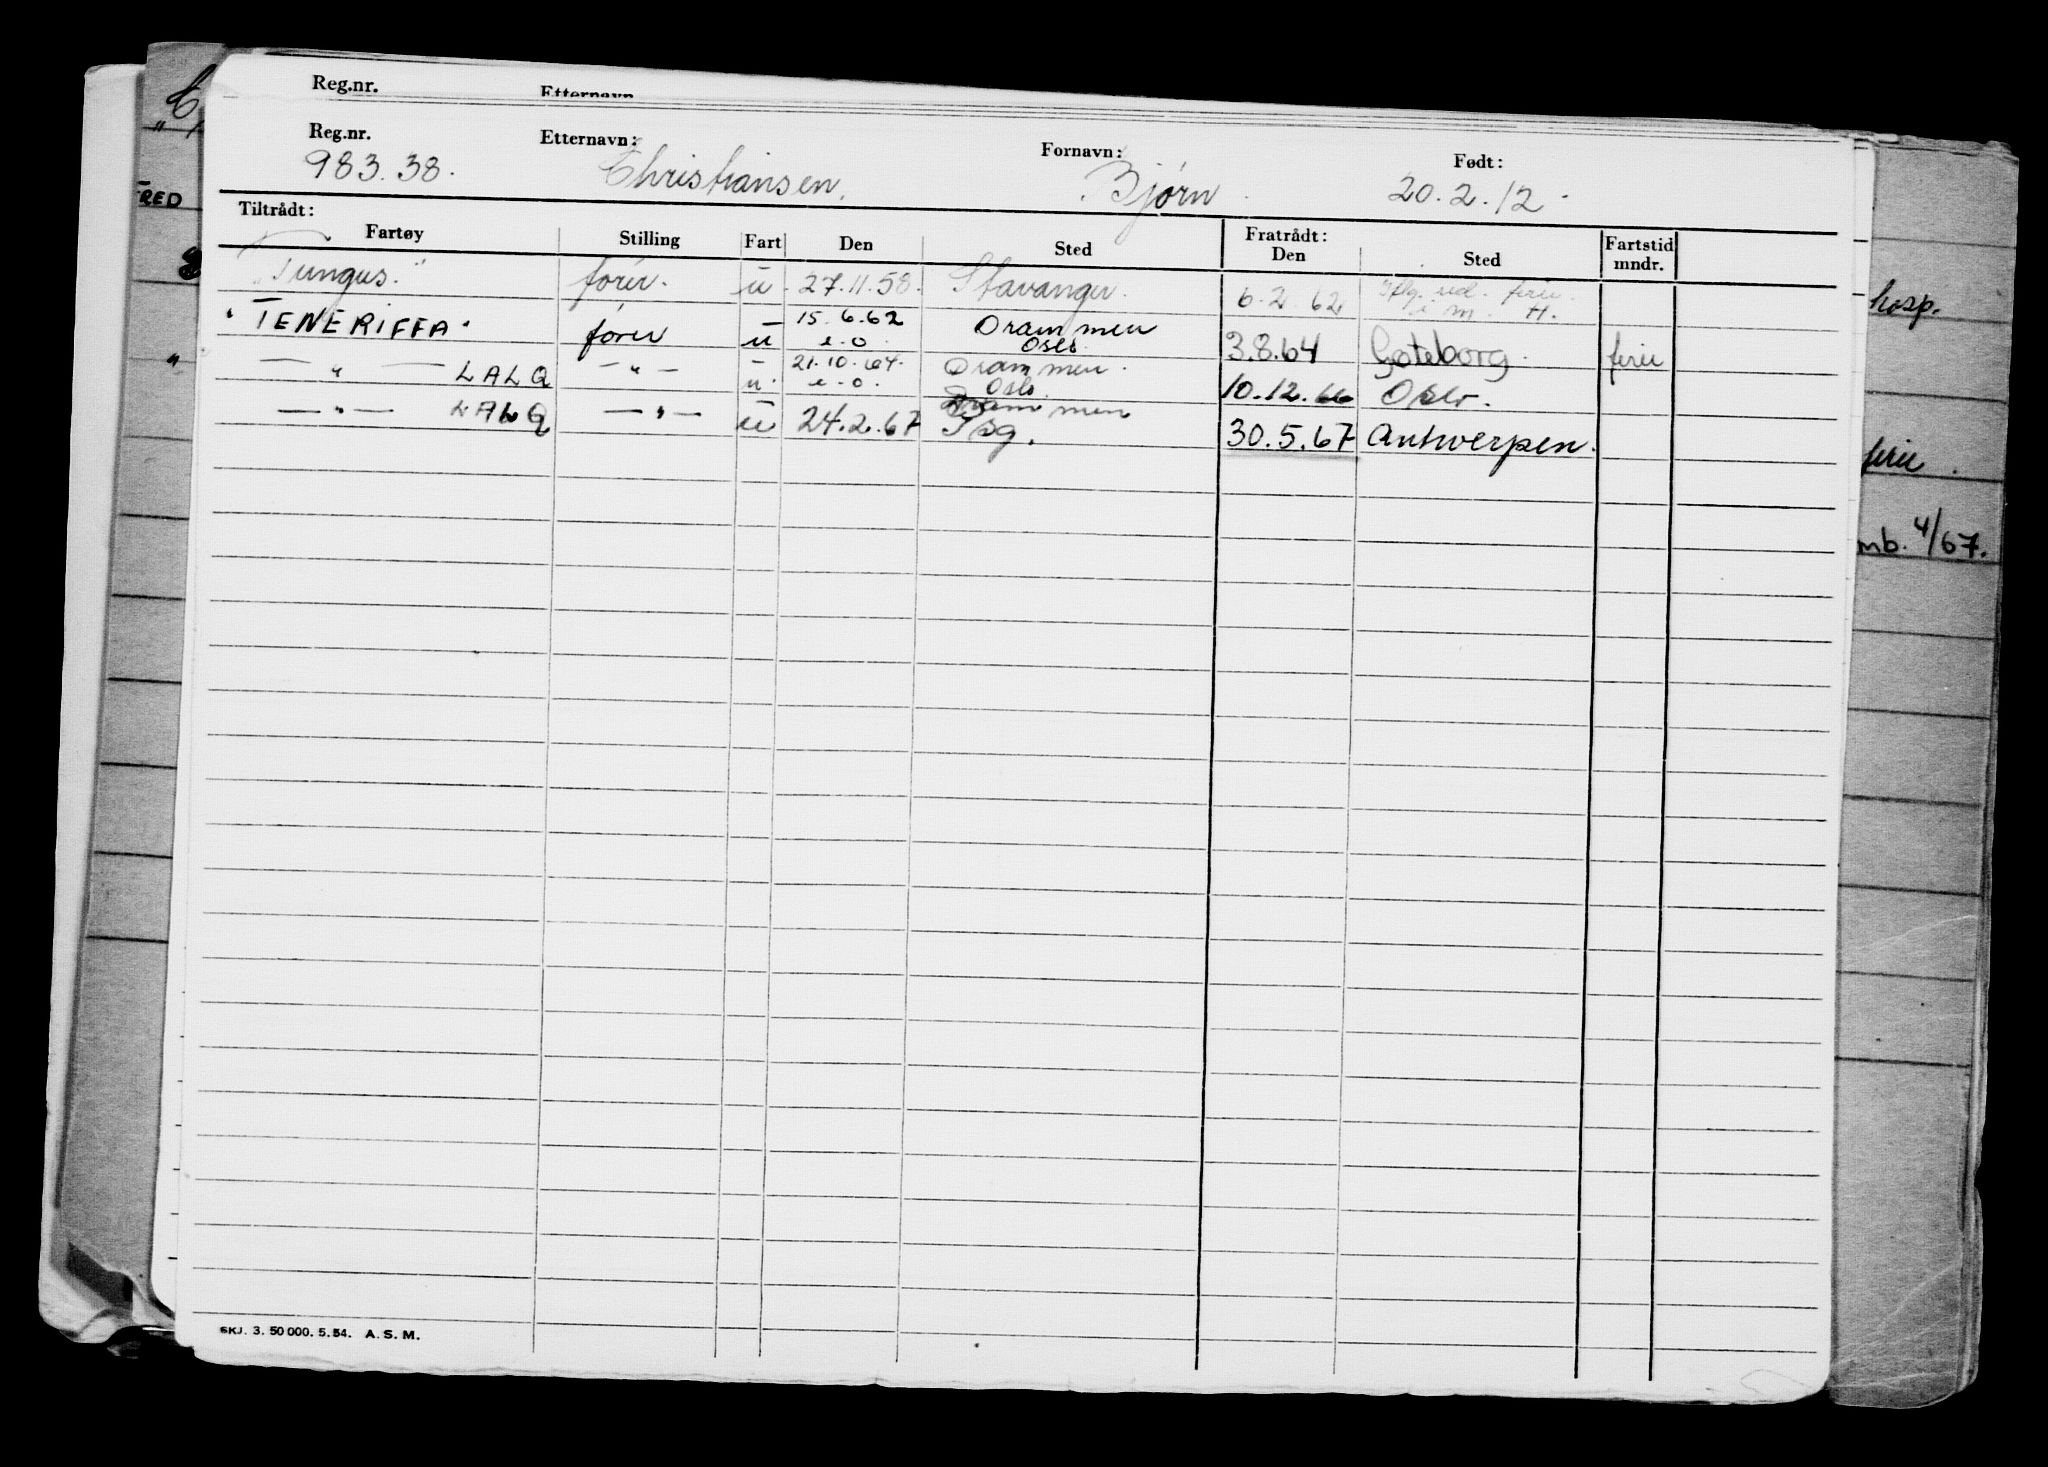 Reg.nr. Etternavn
Reg.nr. Etternavn: Fornavn: Født:
983.38. Christiansen. Bjørn 20.2.12.
Tiltrådt: Fratrådt:
Fartøy Stilling Fart Den Sted Den Sted Fartstid mndr.
"Tungus." fører. u 27.11.58. Stavanger. 6.2.62
"TENERIFFA" fører u 15.6.62 Drammen 3.8.64 Gøteborg. ferie
e.o. Oslo.
— " — LALQ — " — u. 21.10.64. Drammen. 10.12.66 Oslo.
e.o. Oslo.
— " — LALQ — " — u 24.2.67 Drammen 30.5.67 Antwerpen.
Psg.
SKJ. 3. 50 000. 5. 54. A. S. M.
FRED
hosp.
ferie.
mb. 4/67.